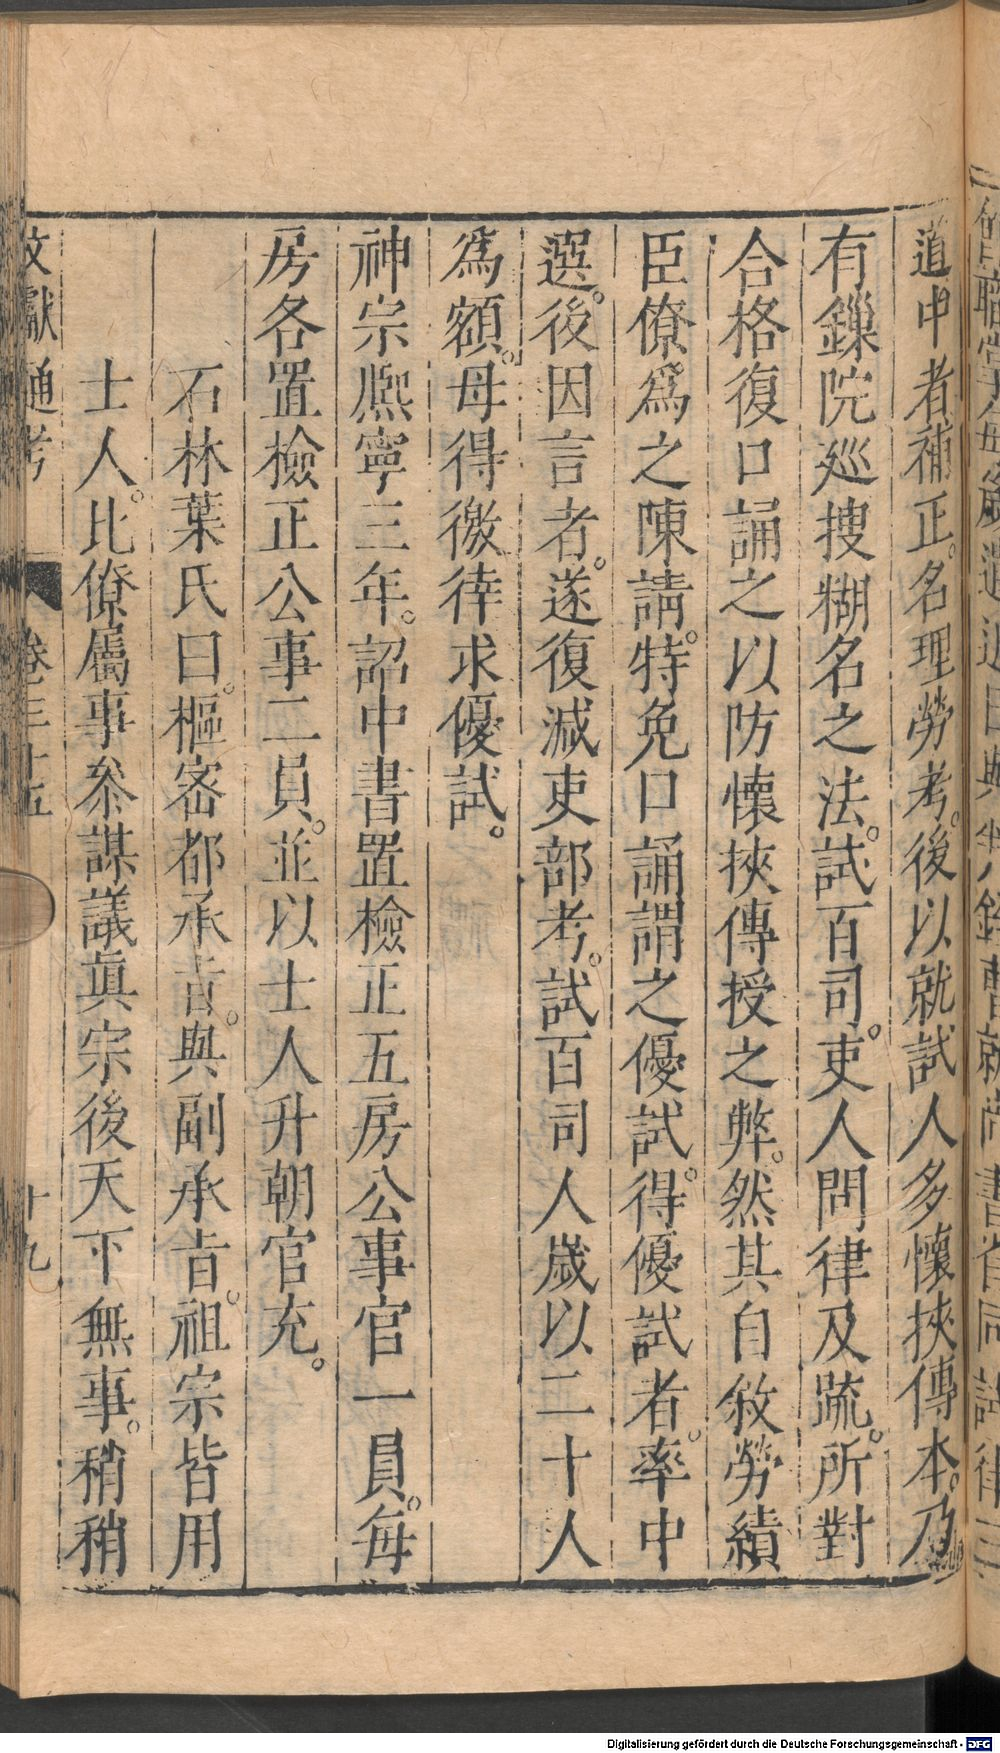 道中者補正。名理勞考。後以就試人多懷挾傳本。乃
有鏁院廵搜糊名之法。試百司。吏人問律及䟽。所對
合格復口誦之以防懷挾傳授之弊。然其自敘勞績
臣僚爲之陳請。特免口誦謂之優試。得優試者。率中
選。後因言者。遂復減吏部考。試百司人歲以二十人
爲額。毋得徼倖求優試。
神宗熈寧三年。詔中書置檢正五房公事官一員。每
房各置檢正公事二員。並以士人升朝官充。
石林葉氏曰。樞密都承㫖。與副承㫖。祖宗皆用
士人。比僚屬事叅謀議眞宗後天下無事。稍稍
文獻通考 卷三十五 十九
Digitalisierung gefördert durch die Deutsche Forschungsgemeinschaft - DFG